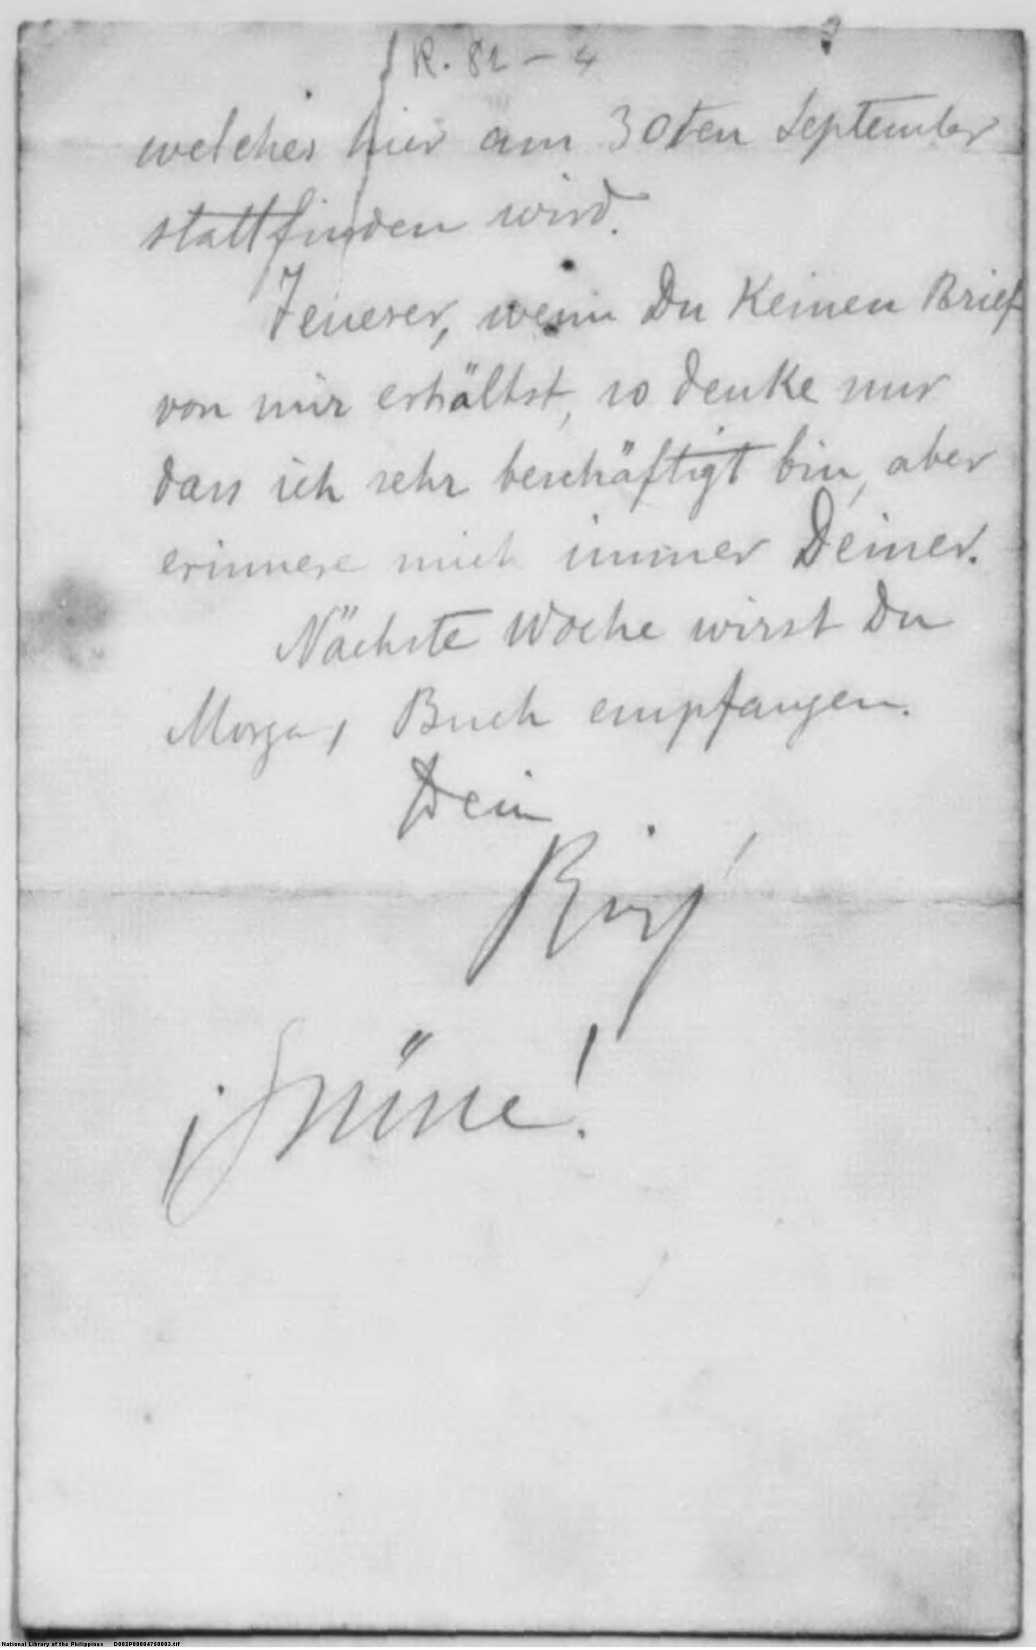 R. 82 - 4
welches hier am 30ten September
stattfinden wird.
Teuerer, wenn Du Keinen Brief
von mir erhältst, so denke nur
dass ich sehr beschäftigt bin, aber
erinnere mich immer Deiner.
Nächste Woche wirst Du
Morga, Buch empfangen.
Dein
Rizal
National Library of the Philippines